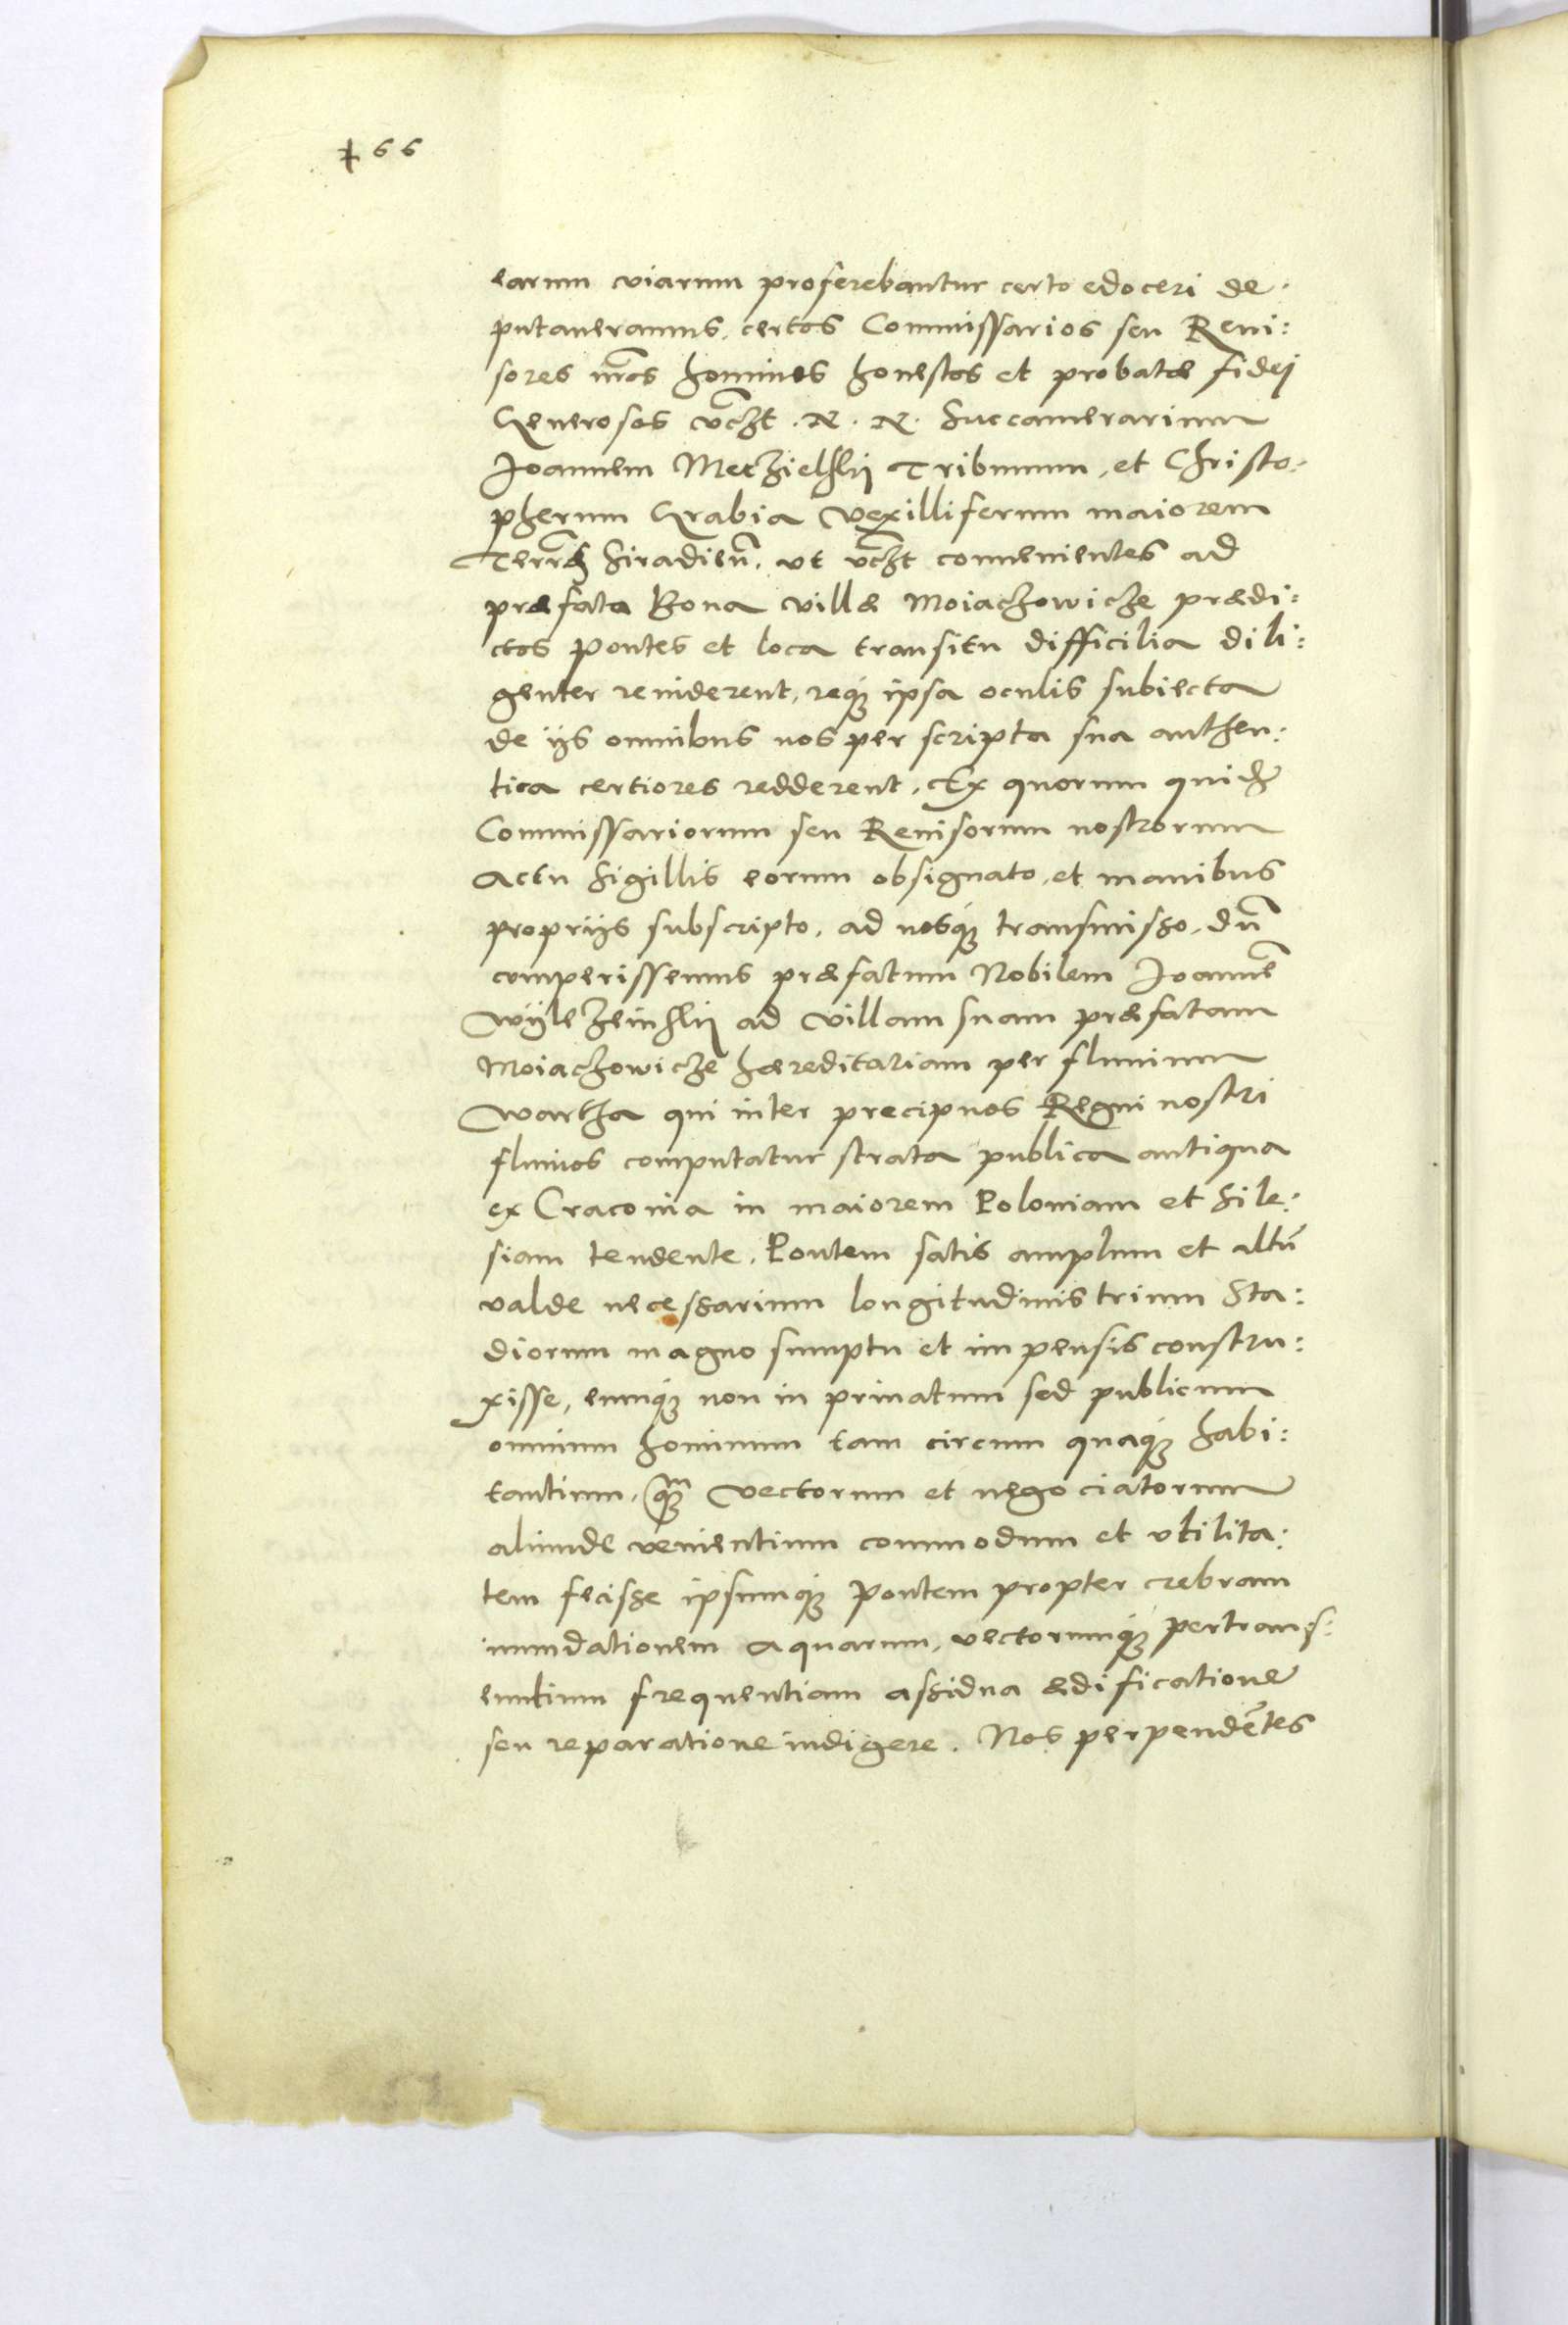 466
earum viarum proferebantur certo edoceri de-
putaueramus, certos Commissarios seu Reui:
sores nr̃os homines honestos et probatæ fidej
Generosos N. N. Succamerarium
Joannem Meczielsky Tribunum, et Christo-
pherum Grabia Vexilliferum maiorem
Siradieñ. vt conuenientes ad
præfata Bona villæ Moiaczowicze prædi:
ctos pontes et loca transitu difficilia dili:
genter reuiderent, reqʒ ipsa oculis subiecta
de ijs omnibus nos per scripta sua authen:
tica certiores redderent. Ex quorum quidẽ
Commissariorum seu Reuisorum nostrorum
Actu Sigillis eorum obsignato, et manibus
proprijs subscripto, ad nosqʒ transmisso, dũ
comperissemus præfatum Nobilem Joannẽ
ad villam suam præfatam
Moiaczowicze hæreditariam per fluuium
Wartha qui inter precipuos Regni nostri
fluuios computatur strata publica antiqua
ex Craconia in maiorem Poloniam et Sile:
siam tendente, Pontem satis amplum et altũ
valde necessarium longitudinis trium Sta:
diorum magno sumptu et impensis constru:
xisse, eumqʒ non in priuatum sed publicum
omnium hominum tam circum quaqʒ habi:
tantium, vectorum et negociatorum
aliunde venientium commodum et vtilita:
tem fecisse ipsumqʒ Pontem propter crebram
inundationem aquarum, vectorumqʒ pertrans:
euntium frequentiam assidua ædificatione
seu reparatione indigere. Nos perpendẽtes